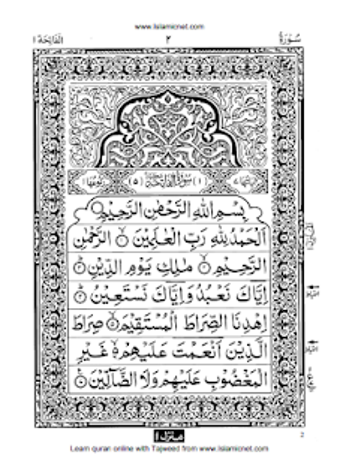 www.Islamicnet.com
سُوْرَةُ ٢ الْفَاتِحَة ١
(١) سُوْرَةُ الْفَاتِحَةِ (٥)
بِسْمِ اللهِ الرَّحْمٰنِ الرَّحِيْمِ
اَلْحَمْدُ لِلّٰهِ رَبِّ الْعٰلَمِيْنَ ۝١ الرَّحْمٰنِ
الرَّحِيْمِ ۝٢ مٰلِكِ يَوْمِ الدِّيْنِ ۝٣
اِيَّاكَ نَعْبُدُ وَاِيَّاكَ نَسْتَعِيْنُ ۝٤
اِهْدِنَا الصِّرَاطَ الْمُسْتَقِيْمَ ۝٥ صِرَاطَ
الَّذِيْنَ اَنْعَمْتَ عَلَيْهِمْ ۝٦ غَيْرِ
الْمَغْضُوْبِ عَلَيْهِمْ وَلَا الضَّآلِّيْنَ ۝٧
منزل ١
2
Learn quran online with Tajweed from www.Islamicnet.com